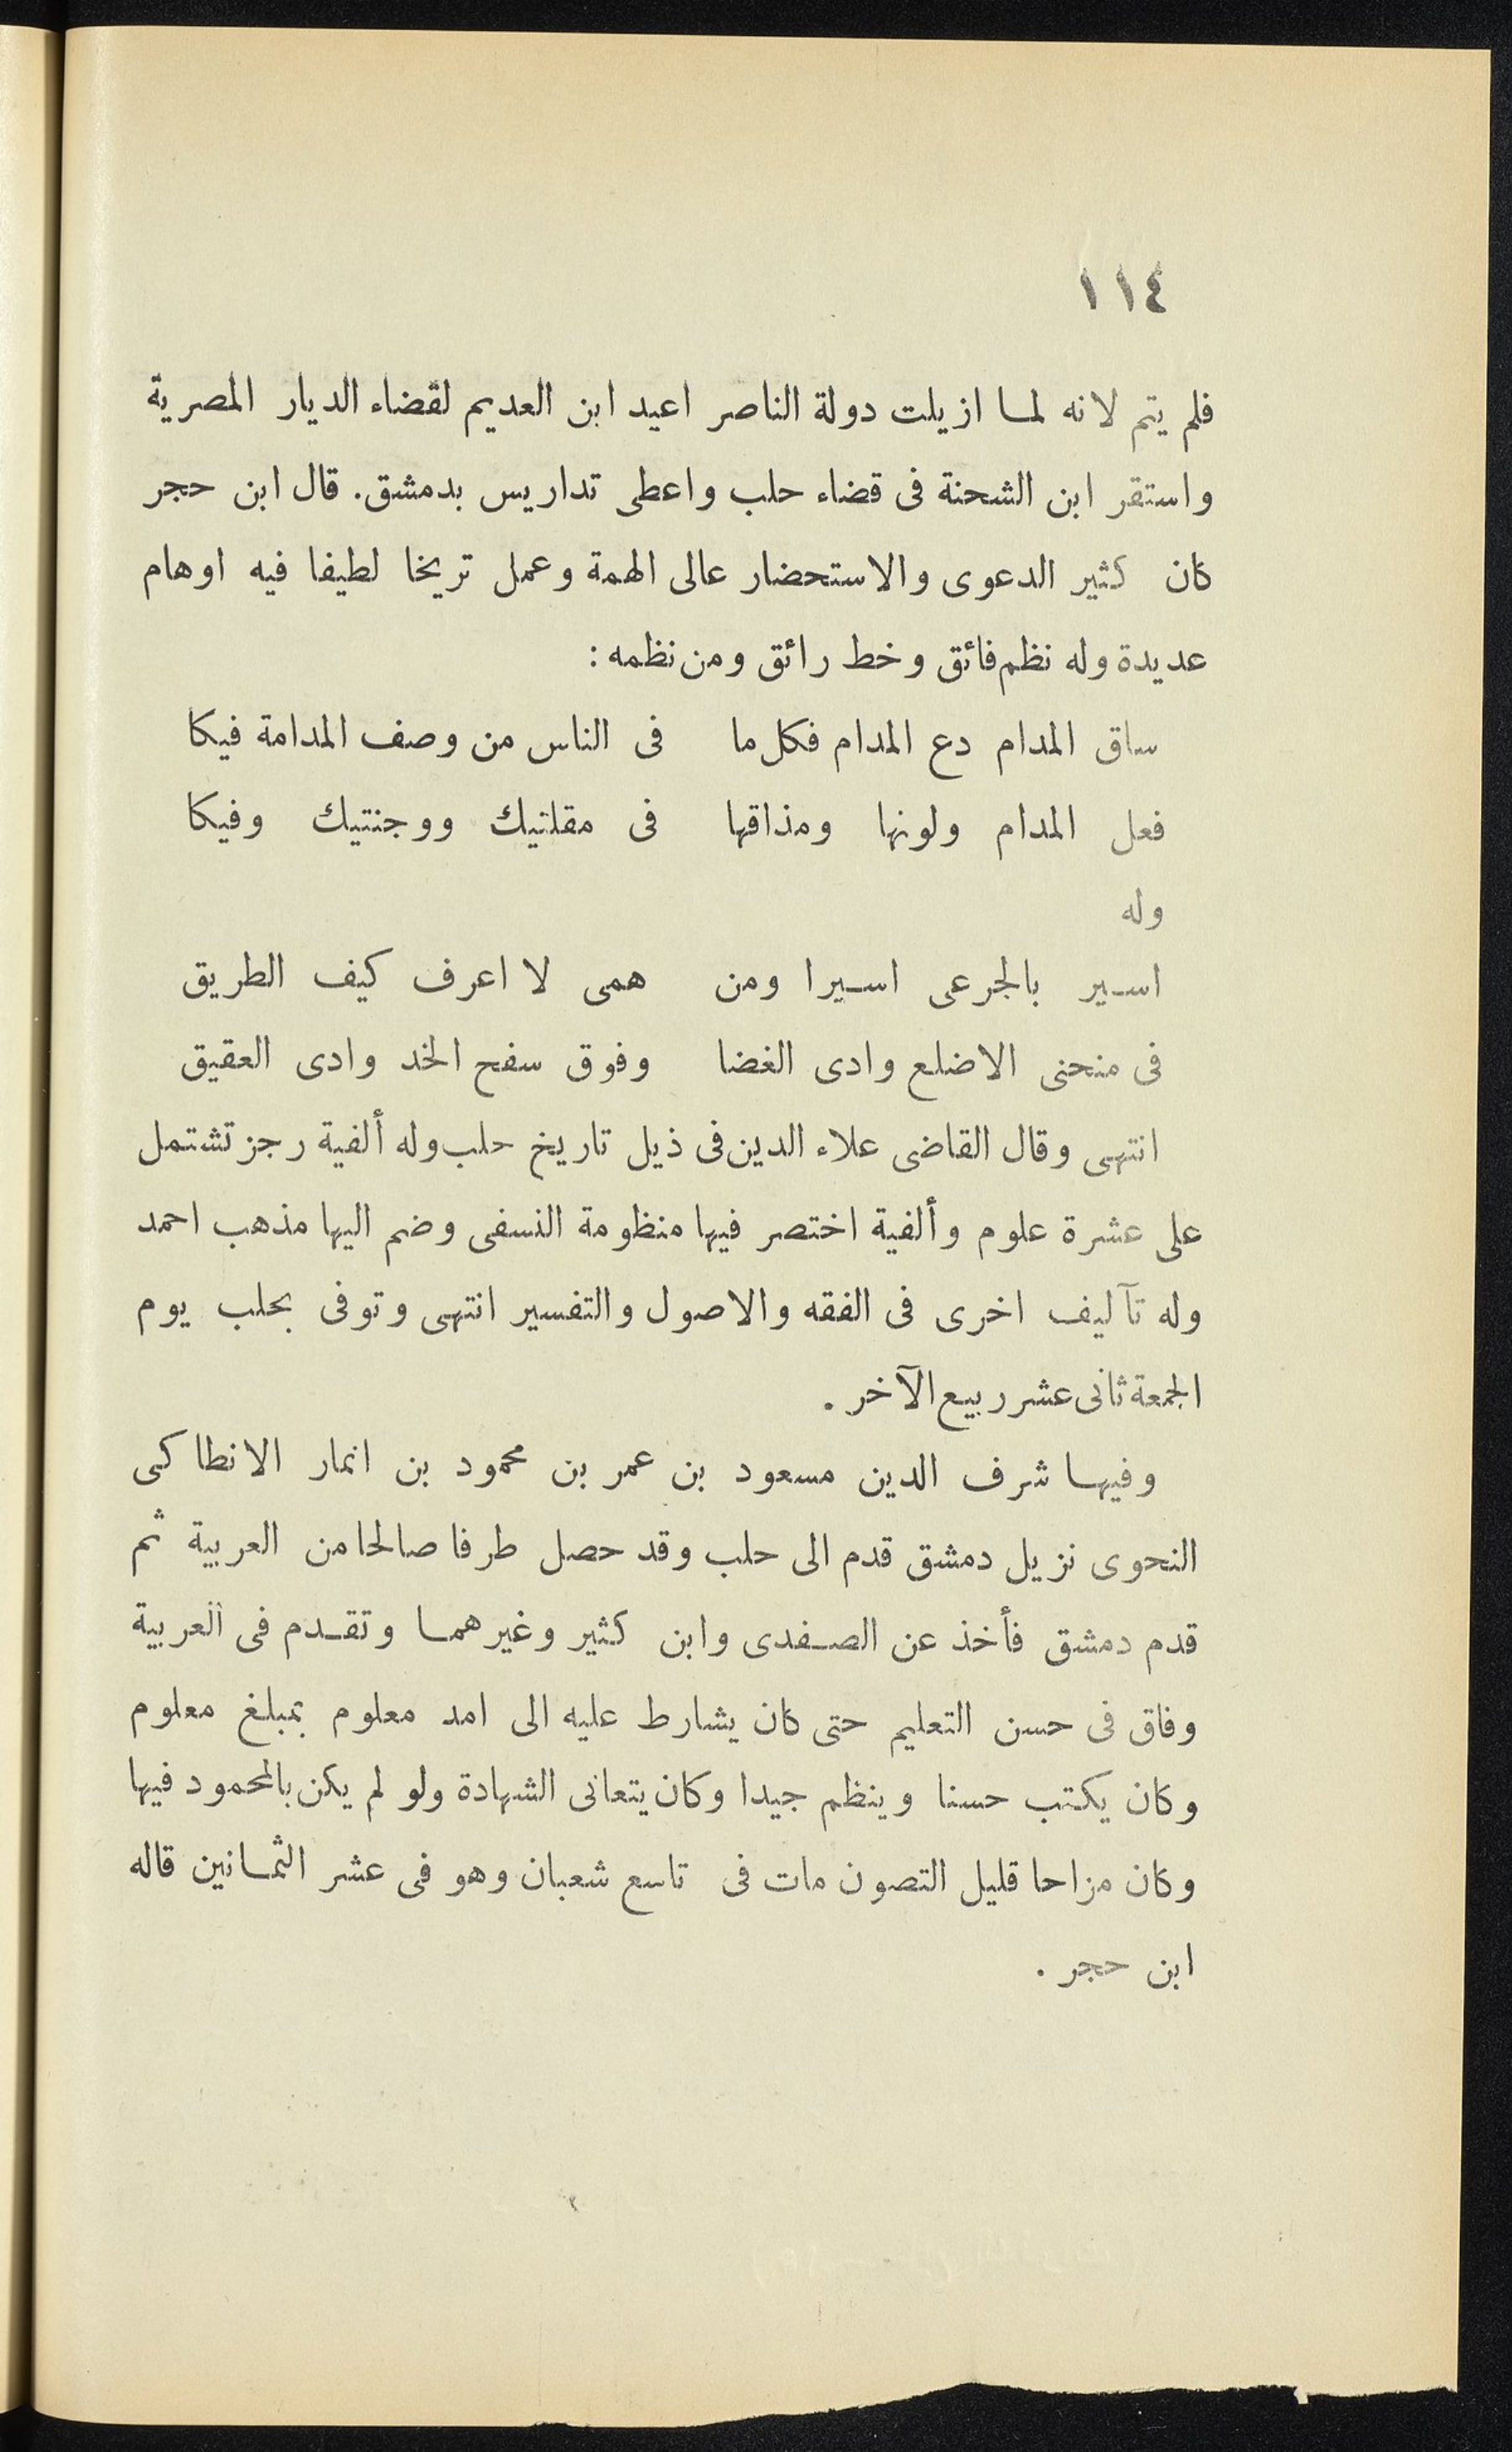 ١١٤
فلم يتم لانه لما ازيلت دولة الناصر اعيد ابن العديم لقضاء الديار المصرية
واستقر ابن الشحنة فى قضاء حلب واعطى تداريس بدمشق. قال ابن حجر
كان كثير الدعوى والاستحضار عالى الهمة وعمل تريخا لطيفا فيه اوهام
عديدة وله نظم فائق وخط رائق ومن نظمه :
ساق المدام دع المدام فكل ما فى الناس من وصف المدامة فيكا
فعل المدام ولونها ومذاقها فى مقلتيك ووجنتيك وفيكا
وله
اسير بالجرعى اسيرا ومن همى لا اعرف كيف الطريق
فى منحنى الاضلع وادى الغضا وفوق سفح الخد وادى العقيق
انتهى وقال القاضى علاء الدين فى ذيل تاريخ حلب وله ألفية رجز تشتمل
على عشرة علوم وألفية اختصر فيها منظومة النسفى وضم اليها مذهب احمد
وله تآليف اخرى فى الفقه والاصول والتفسير انتهى وتوفى بحلب يوم
الجمعة ثانى عشر ربيع الآخر .
وفيها شرف الدين مسعود بن عمر بن محمود بن انمار الانطاكى
النحوى نزيل دمشق قدم الى حلب وقد حصل طرفا صالحا من العربية ثم
قدم دمشق فأخذ عن الصفدى وابن كثير وغيرهما وتقدم فى العربية
وفاق فى حسن التعليم حتى كان يشارط عليه الى امد معلوم بمبلغ معلوم
وكان يكتب حسنا وينظم جيدا وكان يتعانى الشهادة ولو لم يكن بالمحمود فيها
وكان مزاحا قليل التصون مات فى تاسع شعبان وهو فى عشر الثمانين قاله
ابن حجر .